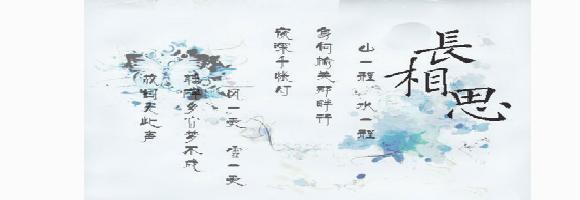 長相思
山一程 水一程
身向榆关那畔行
夜深千帐灯
风一更 雪一更
聒碎乡心梦不成
故园无此声